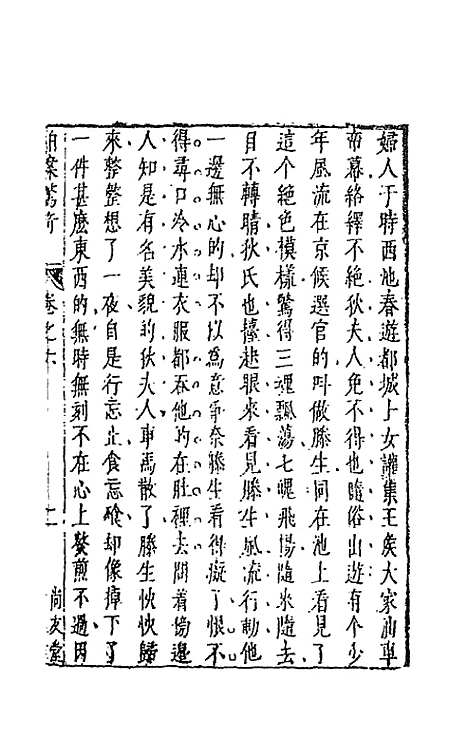 婦人于時西池春遊都城士女讙集王矦大家油車
帘幕絡繹不絕狄夫人免不得也隨俗出遊有个少
年風流在京候選官的叫做滕生同在池上看見了
這个絕色模樣驚得三魂飄蕩七魄飛揚隨來隨去
目不轉睛狄氏也擡起眼來看見滕生風流行動他
一邊無心的却不以為意爭奈滕生看得癡了恨不
得尋口冷水連衣服都吞他的在肚裡去問着傍邊
人知是有名美貌的狄夫人車馬散了滕生怏怏歸
來整整想了一夜自是行忘止食忘飧却像掉下了
一件甚麽東西的無時無刻不在心上熬煎不過因
拍案驚奇 卷之六 尚友堂